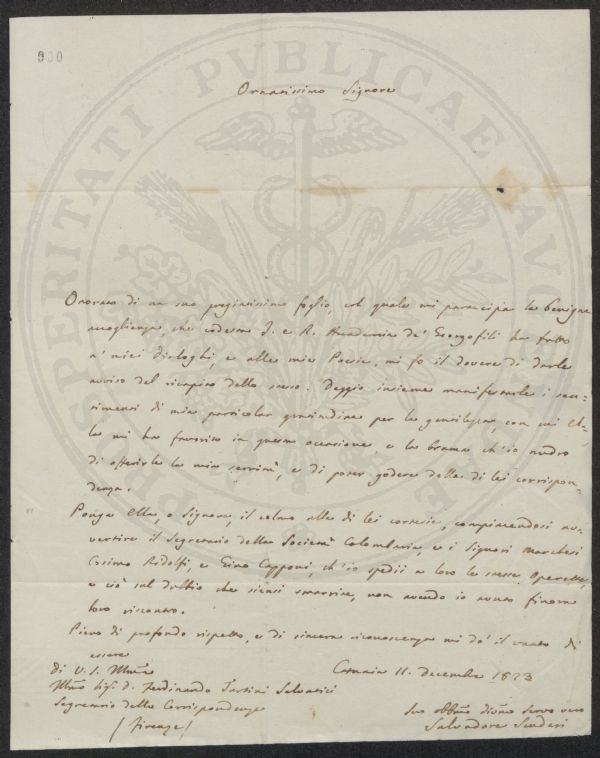 900
PROSPERITATI PVBLICAE AVGENDAE
Ornatissimo Signore
Onorato di un suo pregiatissimo foglio, col quale mi partecipa la benigna
accoglienza, che codesta I. e R. Accademia de' Georgofili ha fatto
a' miei dialoghi, e alle mie Poesie, mi fo il dovere di darle
avviso del ricapito dello stesso. Deggio insieme manifestarle i sen-
timenti di mia particolar gratitudine per la gentilezza, con cui El-
la mi ha favorito in questa occasione, e la brama ch'io nudro
di offerirle la mia servitù, e di poter godere della di lei corrispon-
denza.
Ponga Ella, o Signore, il colmo alla di lei cortesia, compiacendosi av-
vertire il Segretario della Società Colombaria, e i Signori Marchesi
Cosimo Ridolfi, e Gino Capponi, ch'io spedii a loro le stesse operette,
e ciò sul dubbio che siensi smarrite, non avendo io avuto finora
loro riscontro.
Pieno di profondo rispetto, e di sincera riconoscenza mi do' il vanto di
essere
di V. S. Illma
Catania 11. decembre 1823
Illmo Sigr. D. Ferdinando Tartini Salvatici
Segretario della Corrispondenza
(Firenze)
Suo obbmo divmo servo vero
Salvadore Scuderi